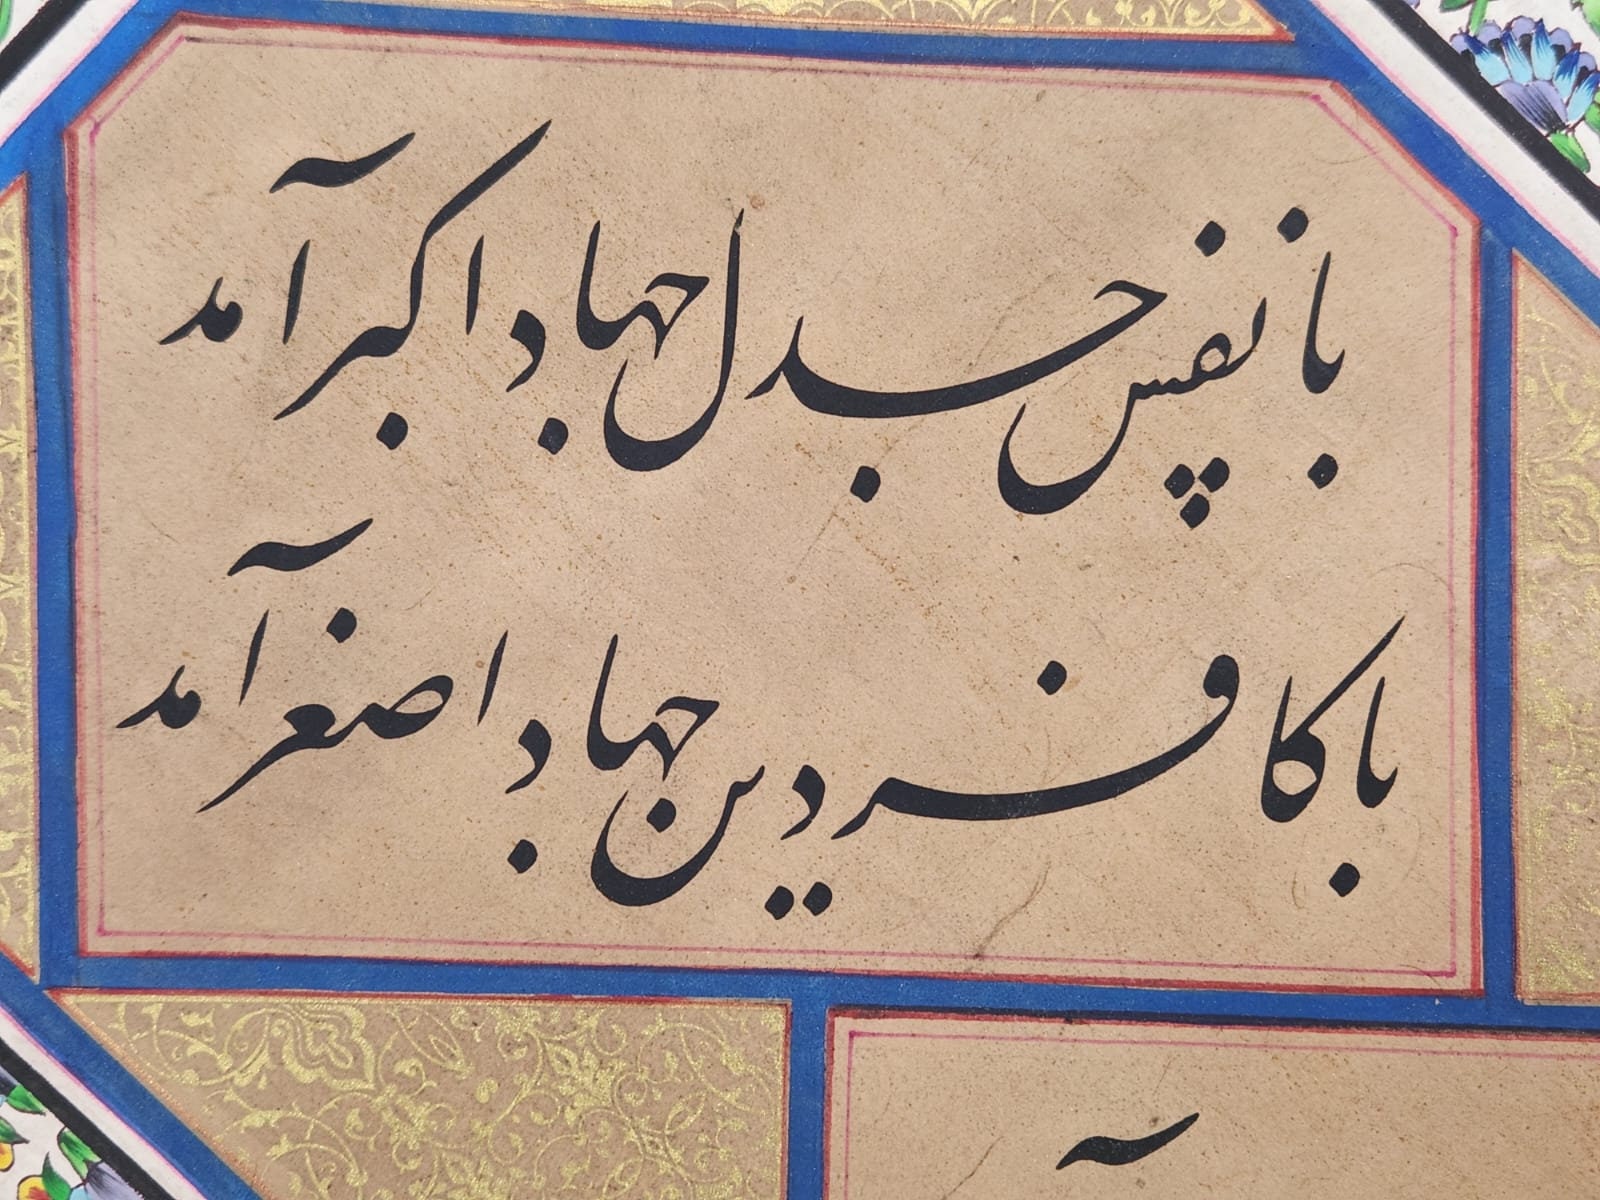 با نفس جدل جهاد اکبر آمد
با کافر دین جهاد اصغر آمد